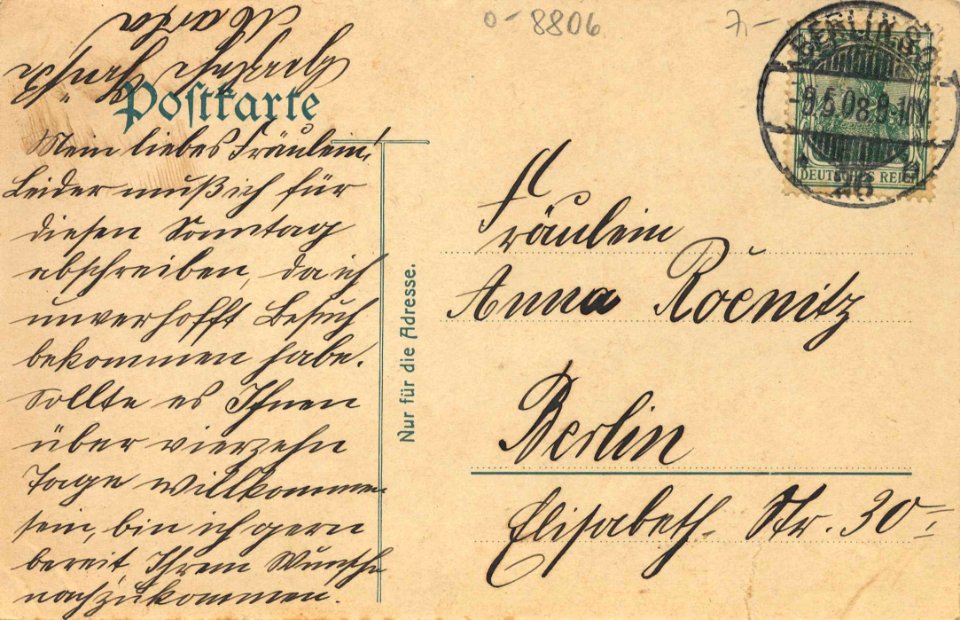 o- 8806
7,-
BERLIN S.O.
-9.5.08.9-10V.
DEUTSCHES REICH
Postkarte
Mein liebes Fräulein!
Leider muß ich für
diesen Sonntag
abschreiben, da ich
unverhofft Besuch
bekommen habe.
Sollte es Ihnen
über vierzehn
Tage willkommen
sein, bin ich gern
bereit Ihrem Wunsche
nachzukommen.
Marta
Nur für die Adresse.
Fräulein
Anna Roenitz
Berlin
Elisabeth-Str. 30